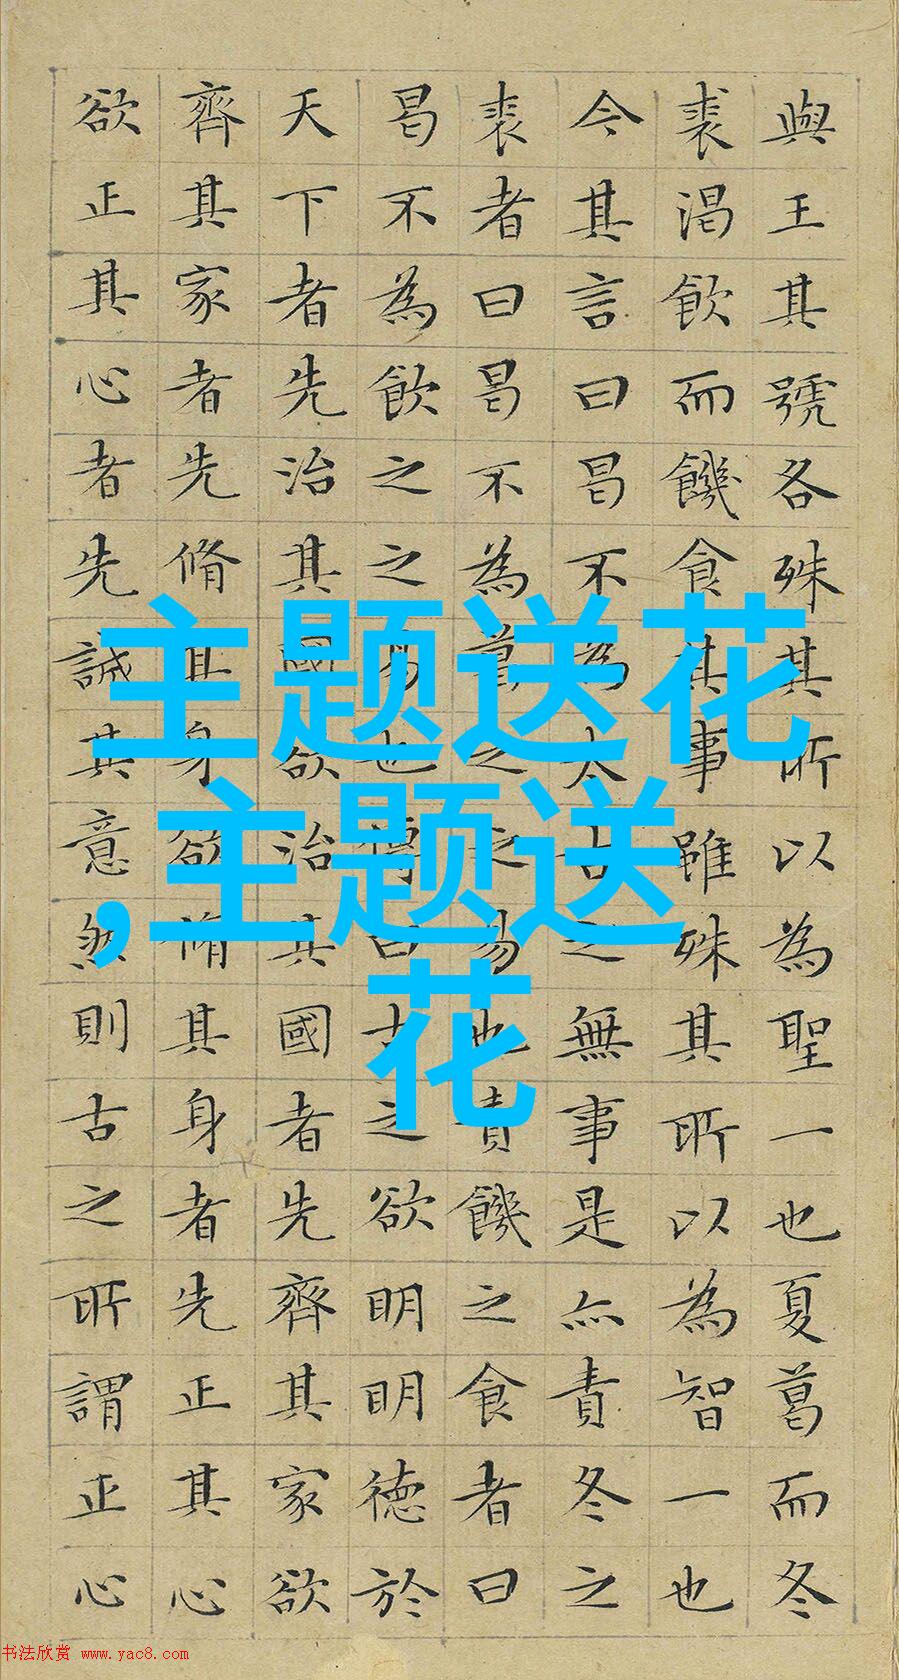 與王其號各殊其所以為聖一也夏葛而冬
裘渴飲而饑食其事雖殊其所以為智一也
今其言曰曷不為太古之無事是亦責冬之
裘者曰曷不為葛之之易也責饑之食者曰
曷不為飲之之易也傳曰古之欲明明德於
天下者先治其國欲治其國者先齊其家欲
齊其家者先脩其身欲脩其身者先正其心
欲正其心者先誠其意然則古之所謂正心
主题送花
,主题送
花
书法欣赏 www.yac8.com